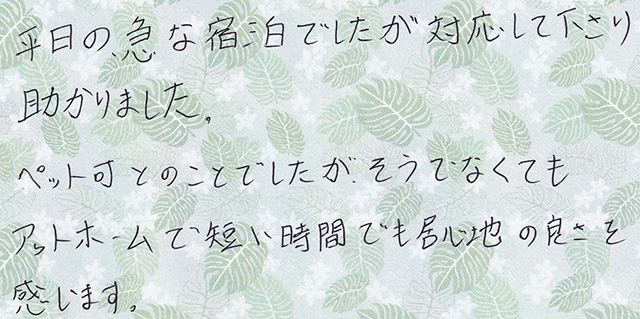 平日の急な宿泊でしたが対応して下さり
助かりました。
ペット可とのことでしたが、そうでなくても
アットホームで短い時間でも居心地の良さを
感じます。